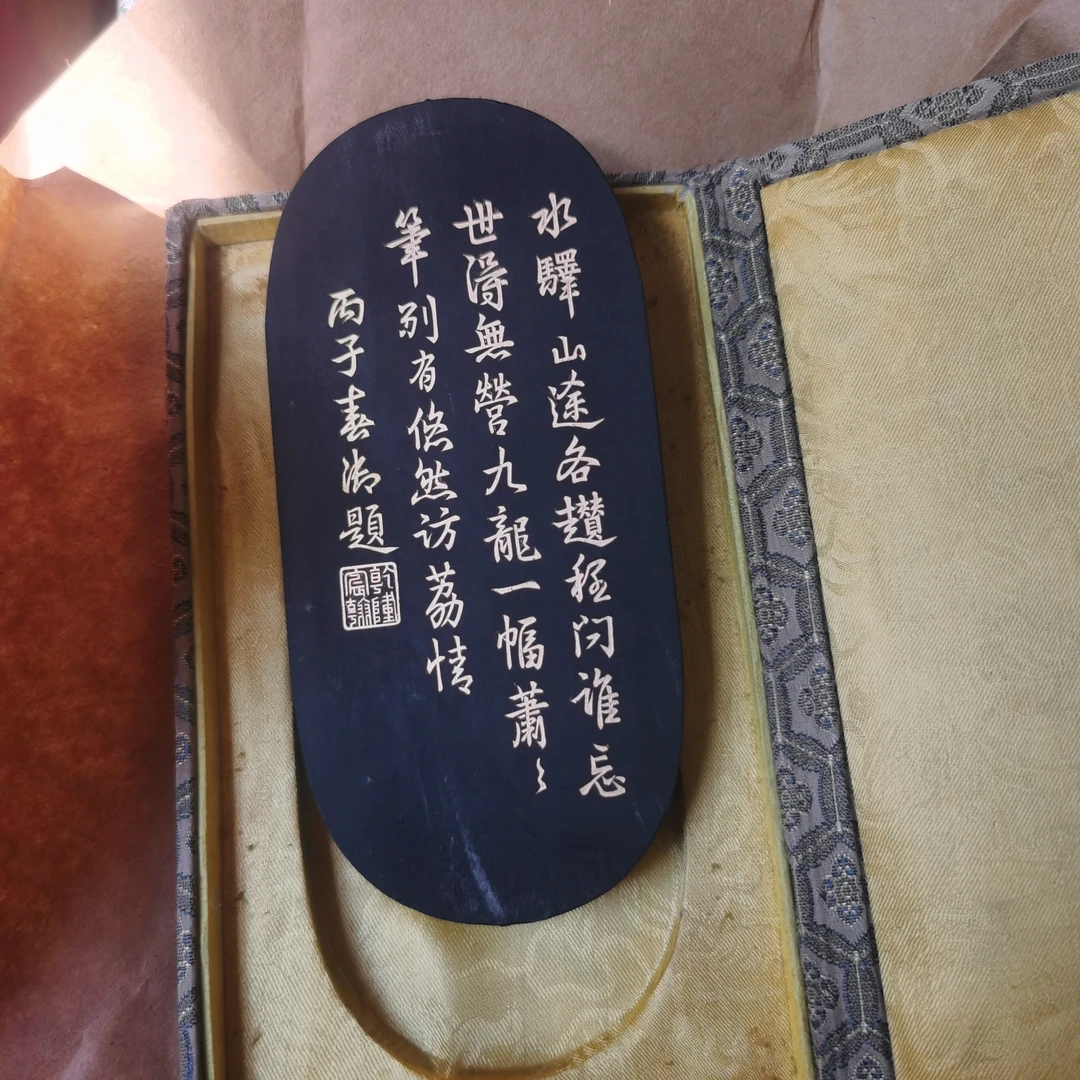 水驛山途各趲程問誰忘
世淂無營九龍一幅蕭〻
筆別有悠然訪荔情
丙子春御題
乾隆宸翰